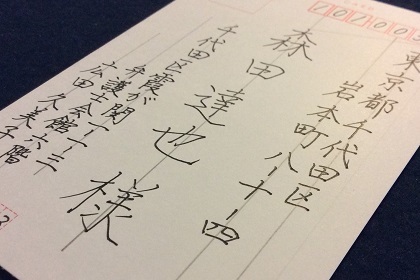 東京都千代田区
岩本町八-十-四
森田達也様
千代田区霞が関一-一-三
弁護士会館六階
広田久美子